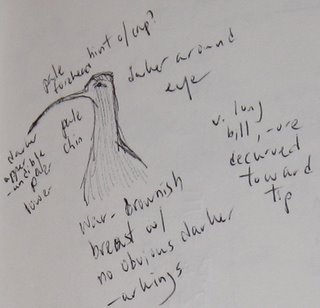 pale
forehead
hint of cap?
darker around
eye
pale
chin
darker
upper
-andible
pale
lower
v. long
bill, -ore
decurved
toward
tip
war- brownish
breast w/
no obvious darker
-arkings